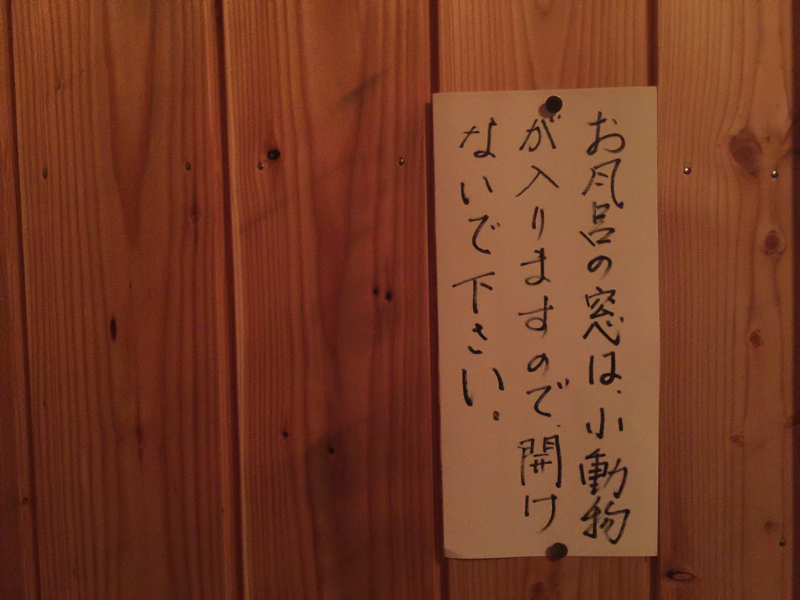 お風呂の窓は、小動物
が入りますので、開け
ないで下さい。